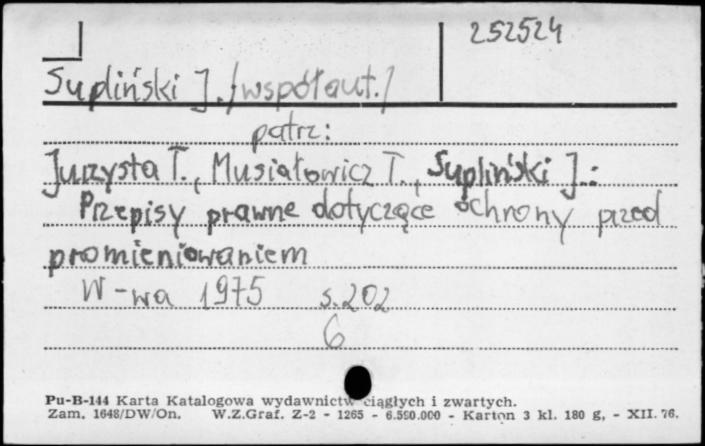 252524
Supliński J. /współaut./
patrz:
Jurzysta T., Musiałowicz T., Supliński J.:
Przepisy prawne dotyczące ochrony przed
promieniowaniem
W-wa 1975 s. 202
6
Pu-B-144 Karta Katalogowa wydawnictw ciągłych i zwartych.
Zam. 1648/DW/On. W.Z.Graf. Z-2 - 1265 - 6.590.000 - Karton 3 kl. 180 g, - XII. 76.